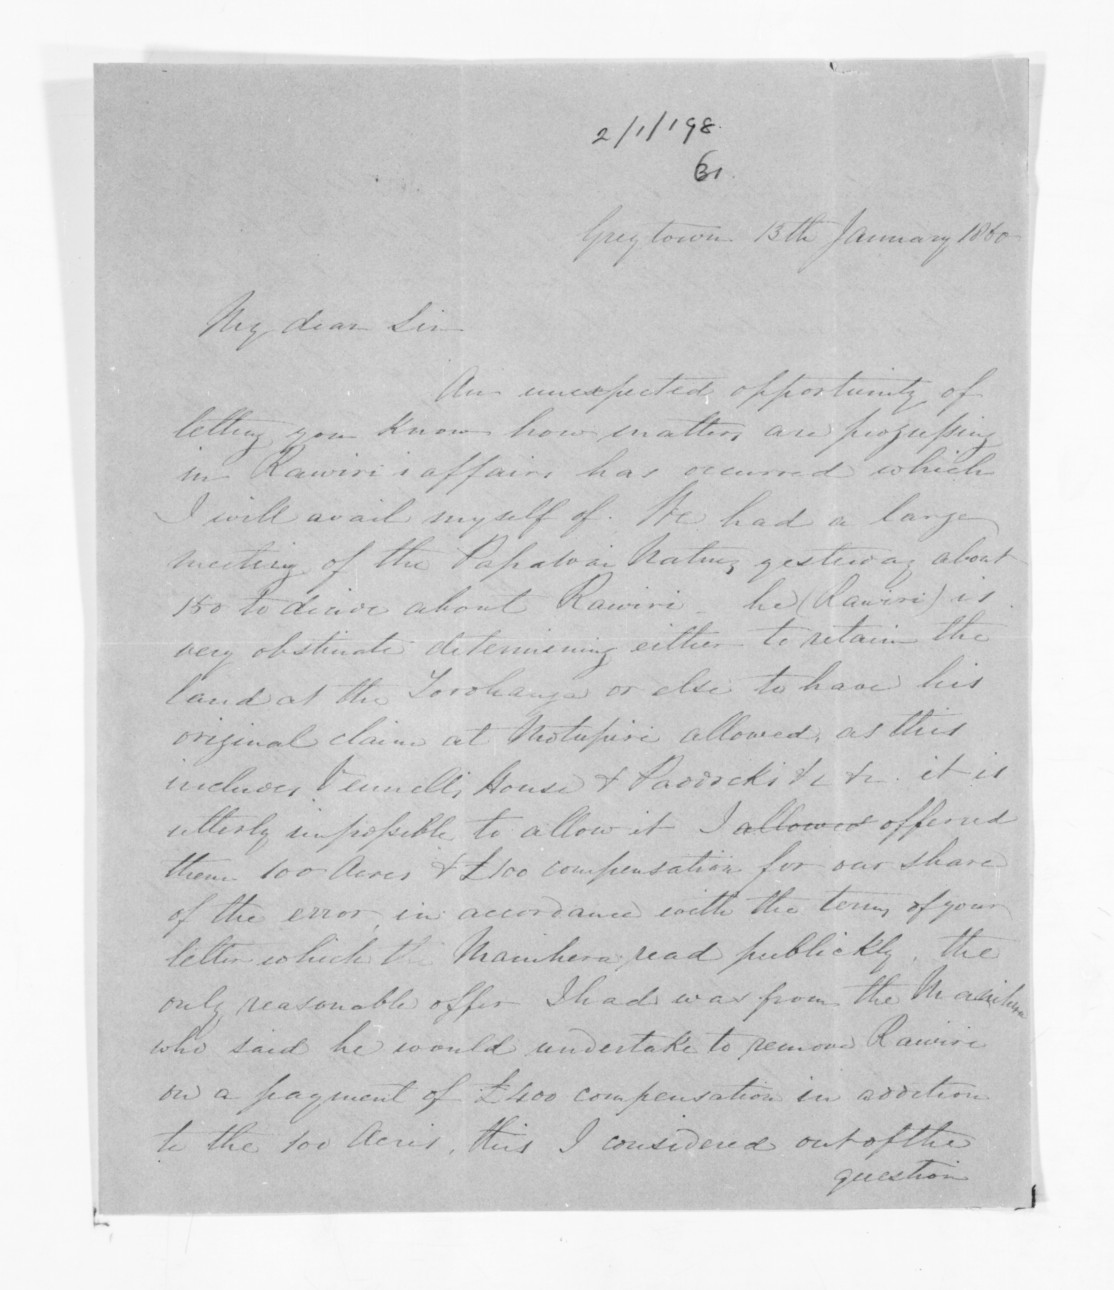 2/1/198.
61.
Greytown 13th January 1860
My dear Sir
An unexpected opportunity of
letting you know how matters are progressing
in Rawiri's affairs has occurred which
I will avail myself of. We had a large
meeting of the Papawai Natives yesterday about
150 to decide about Rawiri - he (Rawiri) is
very obstinate determining either to retain the
land at the Torohanga or else to have his
original claim at Motupiri allowed, as this
includes House & Paddocks &c &c. it is
utterly impossible to allow it I allowed offered
them 100 Acres & £100 compensation for our share
of the error, in accordance with the terms of your
letter which the Manihera read publickly, the
only reasonable offer I had was from the Manihera
who said he would undertake to remove Rawiri
on a payment of £400 compensation in addition
to the 100 Acres, this I considered out of the
question